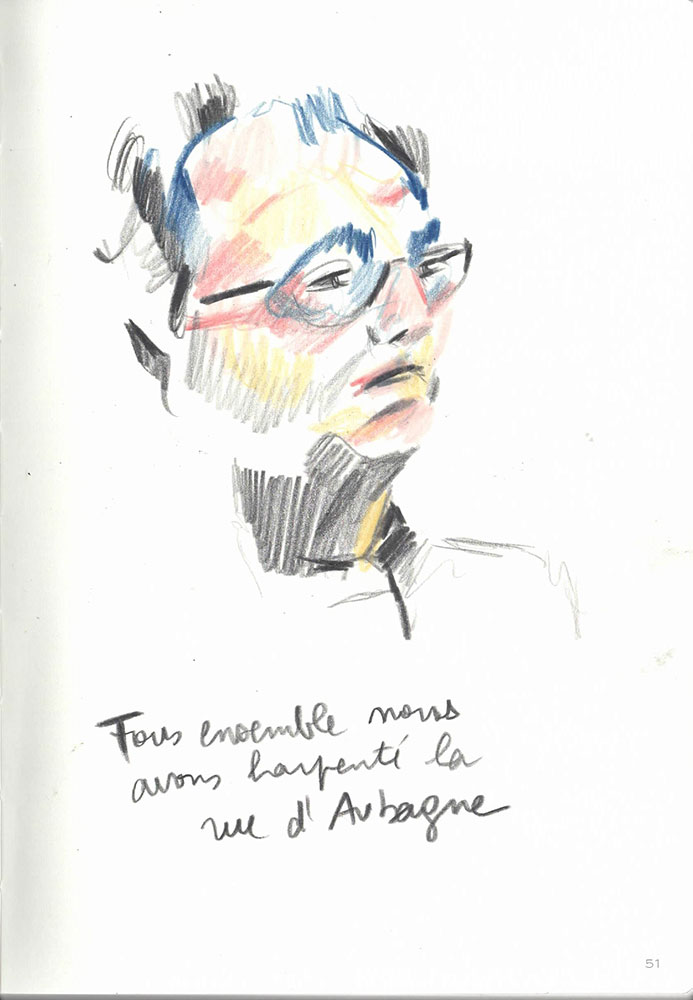 Tous ensemble nous
avons harpenté la
rue d'Aubagne
51